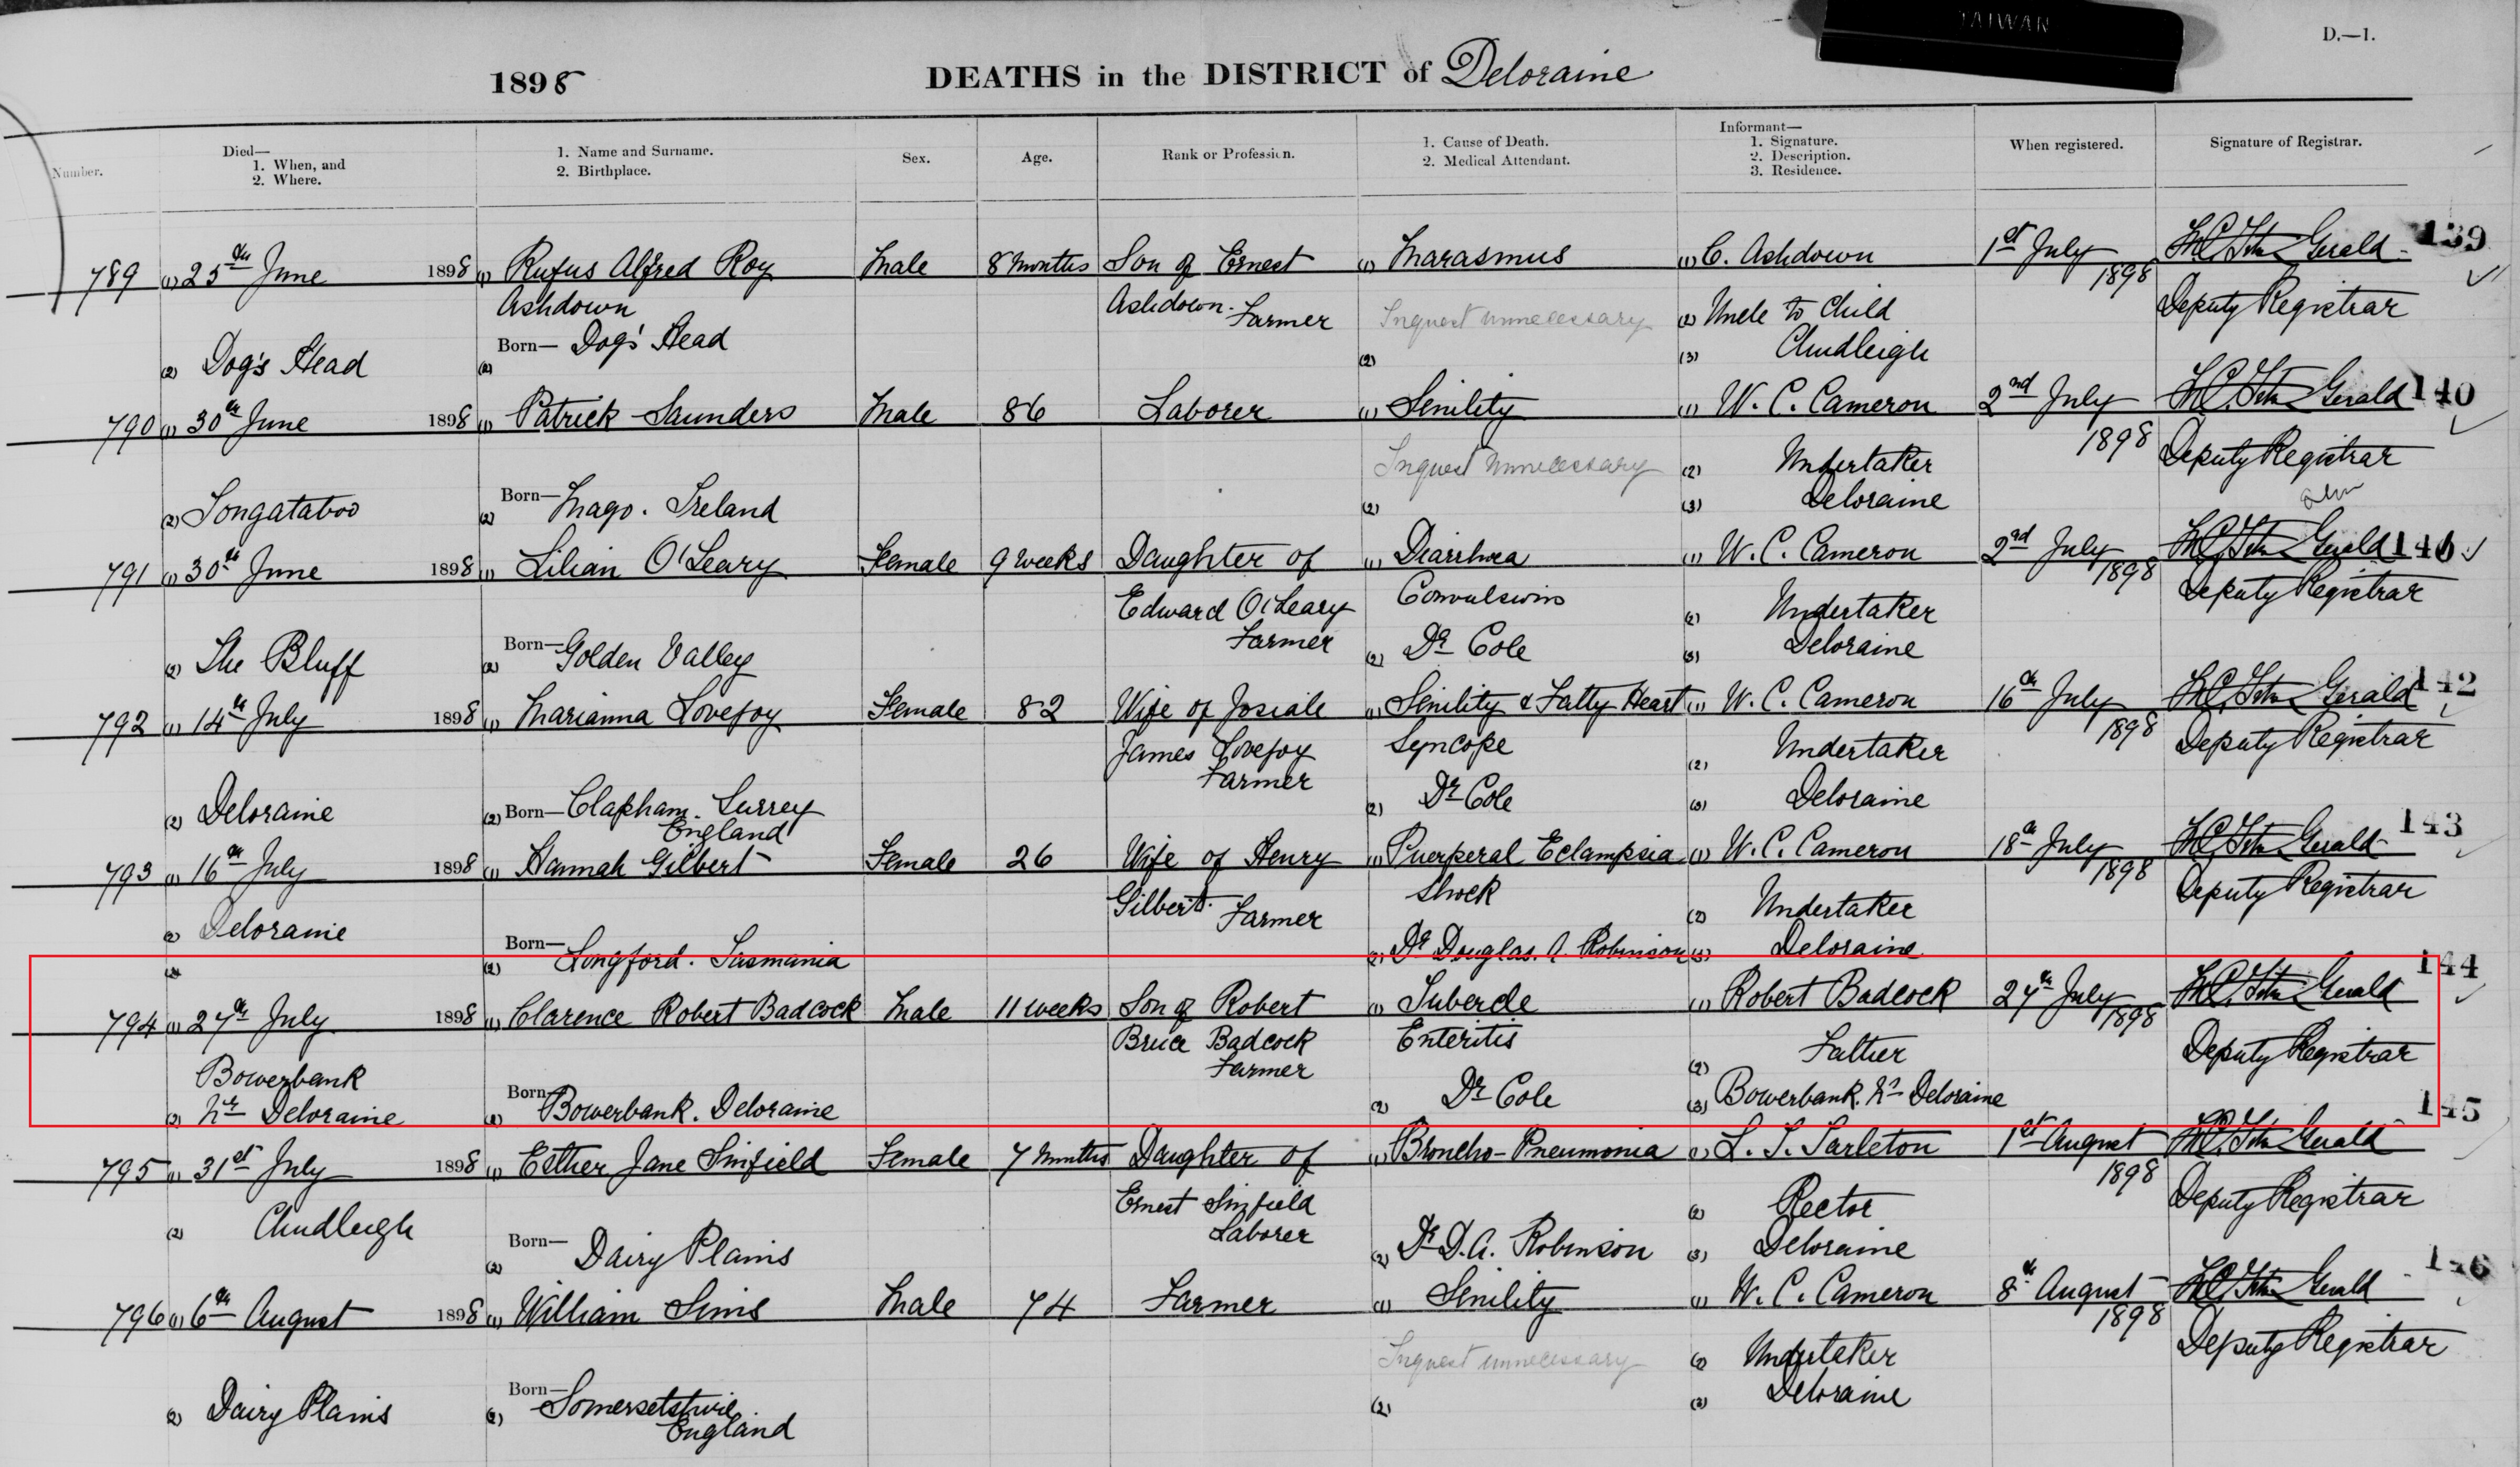 TAIWAN
D.—1.
1898 DEATHS in the DISTRICT of Deloraine
Number.
Died—
1. When, and
2. Where.
1. Name and Surname.
2. Birthplace.
Sex.
Age.
Rank or Profession.
1. Cause of Death.
2. Medical Attendant.
Informant—
1. Signature.
2. Description.
3. Residence.
When registered.
Signature of Registrar.
789 (1) 25th June 1898 (1) Rufus Alfred Roy Male 8 months Son of Ernest (1) Marasmus (1) C. Ashdown 1st July Gerald 139
Ashdown Ashdown. Farmer Inquest unnecessary (2) Uncle to Child 1898 Deputy Registrar
(2) Dog's Head Born— (2) Dogs' Head (2) (3) Chudleigh
790 (1) 30th June 1898 (1) Patrick Saunders Male 86 Laborer (1) Senility (1) W. C. Cameron 2nd July Gerald 140
Inquest unnecessary (2) Undertaker 1898 Deputy Registrar
(2) Tongataboo Born— (2) Mago. Ireland (2) (3) Deloraine
791 (1) 30th June 1898 (1) Lilian O'Leary Female 9 weeks Daughter of (1) Diarrhea (1) W. C. Cameron 2nd July Gerald 146
Edward O'Leary Convulsions (2) Undertaker 1898 Deputy Registrar
(2) The Bluff Born— (2) Golden Valley Farmer (2) Dr Cole (3) Deloraine
792 (1) 14th July 1898 (1) Marianna Lovejoy Female 82 Wife of Josiah (1) Senility & Fatty Heart (1) W. C. Cameron 16th July Gerald 142
James Lovejoy Syncope (2) Undertaker 1898 Deputy Registrar
(2) Deloraine (2) Born— Clapham. Surrey Farmer (2) Dr Cole (3) Deloraine
England
793 (1) 16th July 1898 (1) Hannah Gilbert Female 26 Wife of Henry (1) Puerperal Eclampsia (1) W. C. Cameron 18th July Gerald 143
Gilbert. Farmer Shock (2) Undertaker 1898 Deputy Registrar
(2) Deloraine Born— (2) Longford. Tasmania (2) Dr Douglas. A. Robinson (3) Deloraine
794 (1) 27th July 1898 (1) Clarence Robert Badcock Male 11 weeks Son of Robert (1) Tubercle (1) Robert Badcock 27th July Gerald 144
Bruce Badcock Enteritis (2) Father 1898 Deputy Registrar
Bowerbank Farmer
(2) Nr Deloraine Born (2) Bowerbank. Deloraine (2) Dr Cole (3) Bowerbank. Nr Deloraine
795 (1) 31st July 1898 (1) Esther Jane Sinfield Female 7 months Daughter of (1) Broncho-Pneumonia (1) L. T. Tarleton 1st August Gerald 145
Ernest Sinfield (2) Rector 1898 Deputy Registrar
(2) Chudleigh Born— (2) Dairy Plains Laborer (2) Dr D. A. Robinson (3) Deloraine
796 (1) 6th August 1898 (1) William Sims Male 74 Farmer (1) Senility (1) W. C. Cameron 8th August Gerald 146
Inquest unnecessary (2) Undertaker 1898 Deputy Registrar
(2) Dairy Plains Born— (2) Somersetshire (2) (3) Deloraine
England